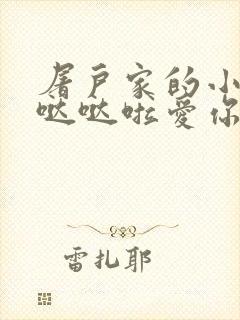 屠户家的小
哒哒啦爱你
雷扎耶